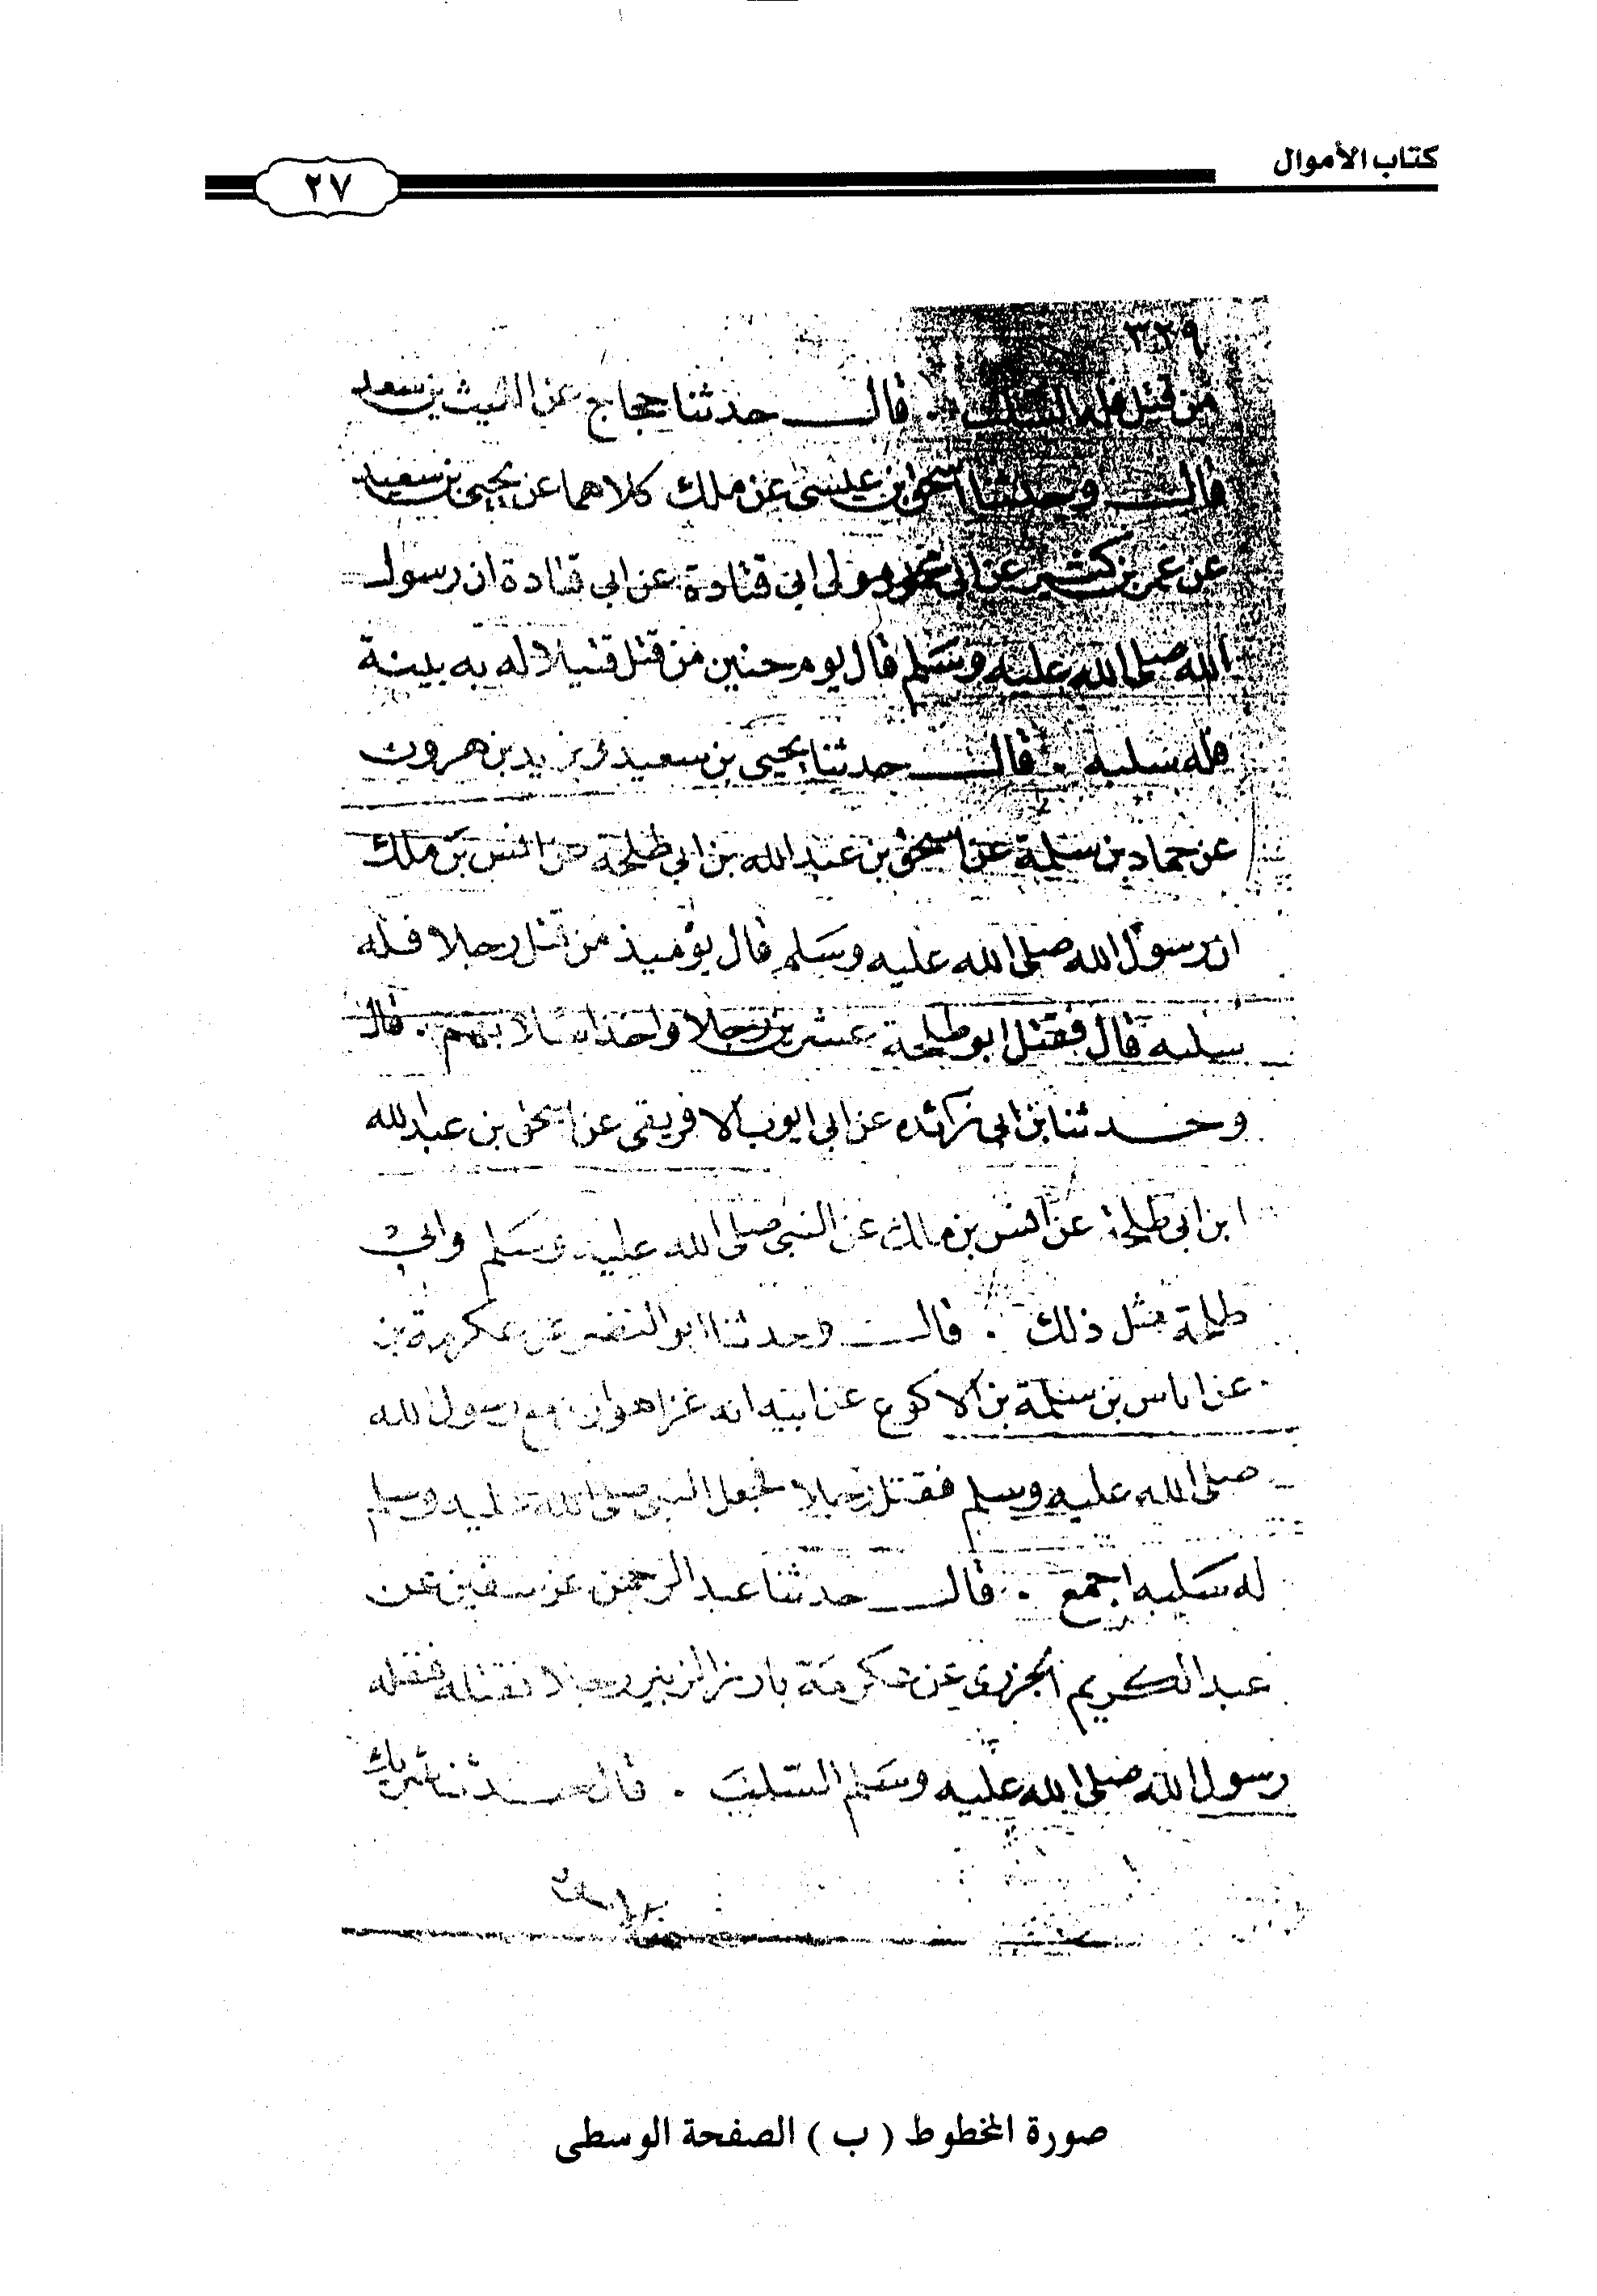 كتاب الأموال
٢٧
٣٣٩
من قتل فله السلب . قال حدثنا حجاج عن الليث بن سعد
قال وحدثنا اسحق بن عيسى عن ملك كلاهما عن يحيى بن سعيد
عن عمر بن كثير عن ابي محمد مولى ابي قتادة عن ابي قتادة ان رسول
الله صلى الله عليه وسلم قال يوم حنين من قتل قتيلا له به بينة
فله سلبه . قال حدثنا يحيى بن سعيد ويزيد بن هرون
عن حماد بن سلمة عن اسحق بن عبد الله بن ابي طلحة عن انس بن ملك
ان رسول الله صلى الله عليه وسلم قال يوميذ من قتل رجلا فله
سلبه قال فقتل ابو طلحة عشرين رجلا واخذ اسلابهم . قال
وحدثنا بن ابي زائده عن ابي ايوب الافريقي عن اسحق بن عبد الله
ابن ابي طلحة عن انس بن مالك عن النبي صلى الله عليه وسلم وابي
طلحة مثل ذلك . قال وحدثنا ابو النضر عن عكرمة بن
عن اياس بن سلمة بن الاكوع عن ابيه انه غزا هوازن مع رسول الله
صلى الله عليه وسلم فقتل رجلا فجعل النبي صلى الله عليه وسلم
له سلبه اجمع . قال حدثنا عبد الرحمن عن سفين عن
عبد الكريم الجزري عن عكرمة بارز الزبير رجلا فقتله فنفله
رسول الله صلى الله عليه وسلم السلب . قال حدثنا شريك
صورة المخطوط ( ب ) الصفحة الوسطى